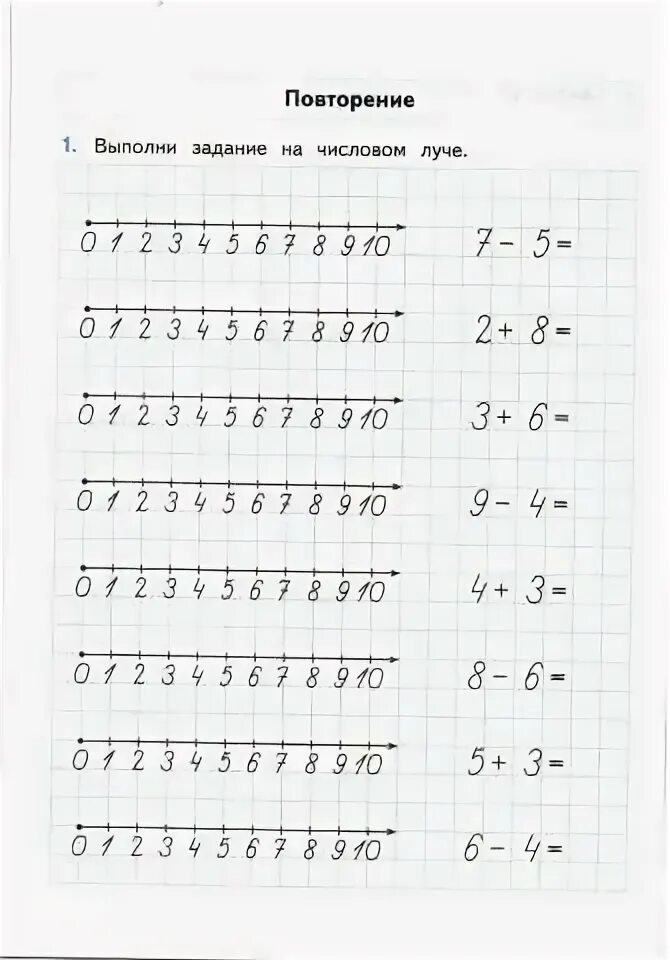 Повторение
1. Выполни задание на числовом луче.
0 1 2 3 4 5 6 7 8 9 10 7 - 5 =
0 1 2 3 4 5 6 7 8 9 10 2 + 8 =
0 1 2 3 4 5 6 7 8 9 10 3 + 6 =
0 1 2 3 4 5 6 7 8 9 10 9 - 4 =
0 1 2 3 4 5 6 7 8 9 10 4 + 3 =
0 1 2 3 4 5 6 7 8 9 10 8 - 6 =
0 1 2 3 4 5 6 7 8 9 10 5 + 3 =
0 1 2 3 4 5 6 7 8 9 10 6 - 4 =